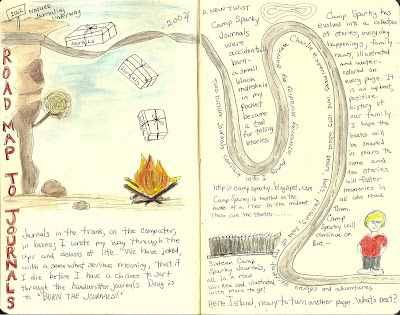 2002
NATURE
Journaling
underway
2007
JOURNALS
ROAD MAP TO JOURNALS
Journals in the trunk, on the computer,
in boxes; I wrote my way through the
ups and downs of life. We have joked,
with a somewhat serious meaning, that if
I die before I have a chance to sort
through the handwritten journals Doug is
to "BURN THE JOURNALS!"
A NEW TWIST
Camp Sparky
Journals
were
accidentally
born -
a small
black
moleskine
in my
pocket
became
a tool
for telling
stories
http://campsparky.blogspot.com
Camp Sparky is nestled on the
banks of a river in the midwest
These are the stories......
Sixteen Camp
Sparky Journals,
all in a row
written and illustrated
with more to go!
Camp Sparky has
evolved into a collection
of stories, everyday
happenings, family
news, illustrated
and water-
colored on
every page. It
is an upbeat,
positive
history of
our family.
I hope the
books will
be shared
in years to
come and
the stories
will foster
memories
in all who
read
them.
Camp
Sparky will
continue on
But —
Here I stand, ready to turn another page. What's next?